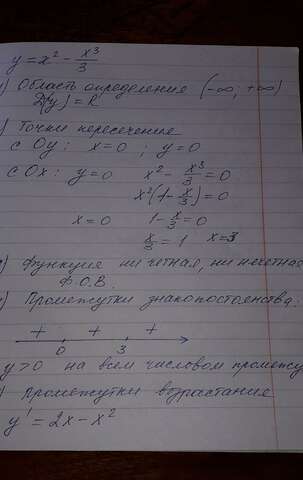 y = x² - x³/3
) Область определения (-∞; +∞)
D(y) = R
) Точки пересечение
с Oy: x=0 ; y=0
с Ox: y=0 x² - x³/3 = 0
x²(1 - x/3) = 0
x=0 1 - x/3 = 0
x/3 = 1 x=3
) Функция ни четная, ни нечетная
Ф.О.В.
) Промежутки знакопостоянства.
+ + +
0 3
y>0 на всем числовом промежу
) промежутки возрастание
y' = 2x - x²